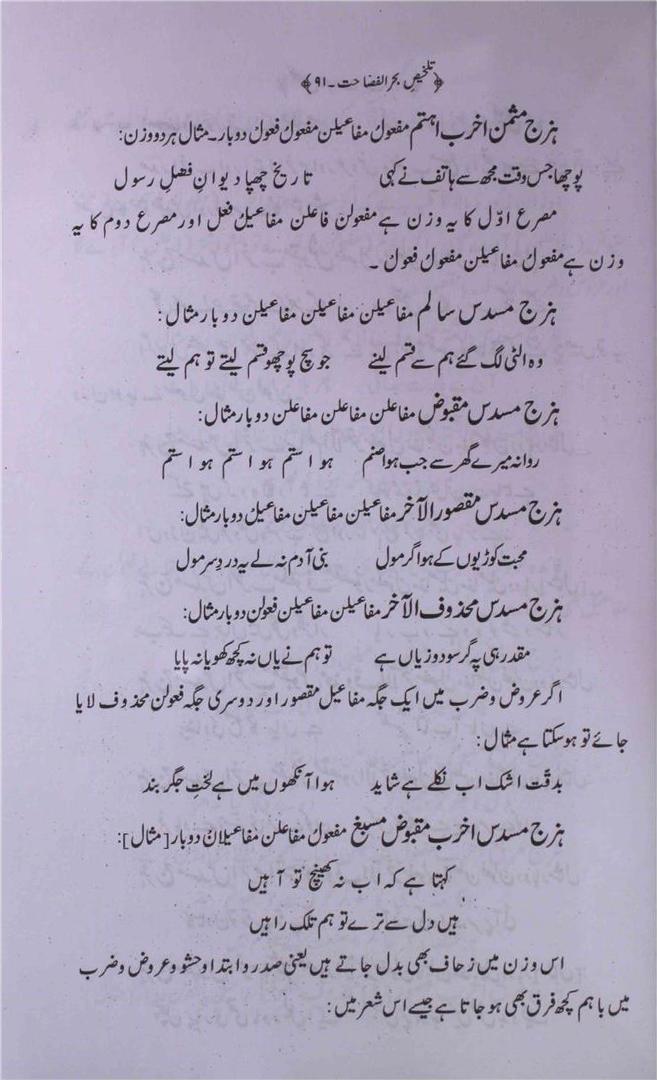 ﴿تلخیصِ بحر الفصاحت۔۹۱﴾
ہزج مثمن اخرب اہتم مفعول مفاعیلن مفعول فعول دوبار۔ مثال ہر دو وزن:
پوچھا جس وقت مجھ سے ہاتف نے کہی تاریخ چھپا دیوانِ فضلِ رسول
مصرع اوّل کا یہ وزن ہے مفعولن فاعلن مفاعیل فعل اور مصرع دوم کا یہ
وزن ہے مفعول مفاعیلن مفعول فعول۔
ہزج مسدس سالم مفاعیلن مفاعیلن مفاعیلن دوبار مثال:
وہ الٹی لگ گئے ہم سے قسم لینے جو سچ پوچھو قسم لیتے تو ہم لیتے
ہزج مسدس مقبوض مفاعلن مفاعلن مفاعلن دوبار مثال:
روانہ میرے گھر سے جب ہوا صنم ہوا ستم ہوا ستم ہوا ستم
ہزج مسدس مقصور الآخر مفاعیلن مفاعیلن مفاعیل دوبار مثال:
محبت کوڑیوں کے ہو اگر مول بنی آدم نہ لے یہ دردِ سر مول
ہزج مسدس محذوف الآخر مفاعیلن مفاعیلن فعولن دوبار مثال:
مقدر ہی پہ گر سود و زیاں ہے تو ہم نے یاں نہ کچھ کھویا نہ پایا
اگر عروض و ضرب میں ایک جگہ مفاعیل مقصور اور دوسری جگہ فعولن محذوف لایا
جائے تو ہوسکتا ہے مثال:
بدقّت اشک اب نکلے ہے شاید ہوا آنکھوں میں ہے لختِ جگر بند
ہزج مسدس اخرب مقبوض مسبغ مفعول مفاعلن مفاعیلان دوبار [مثال]:
کہتا ہے کہ اب نہ کھینچ تو آہیں
ہیں دل سے ترے تو ہم تلک راہیں
اس وزن میں زحاف بھی بدل جاتے ہیں یعنی صدر و ابتدا و حشو و عروض و ضرب
میں باہم کچھ فرق بھی ہو جاتا ہے جیسے اس شعر میں: